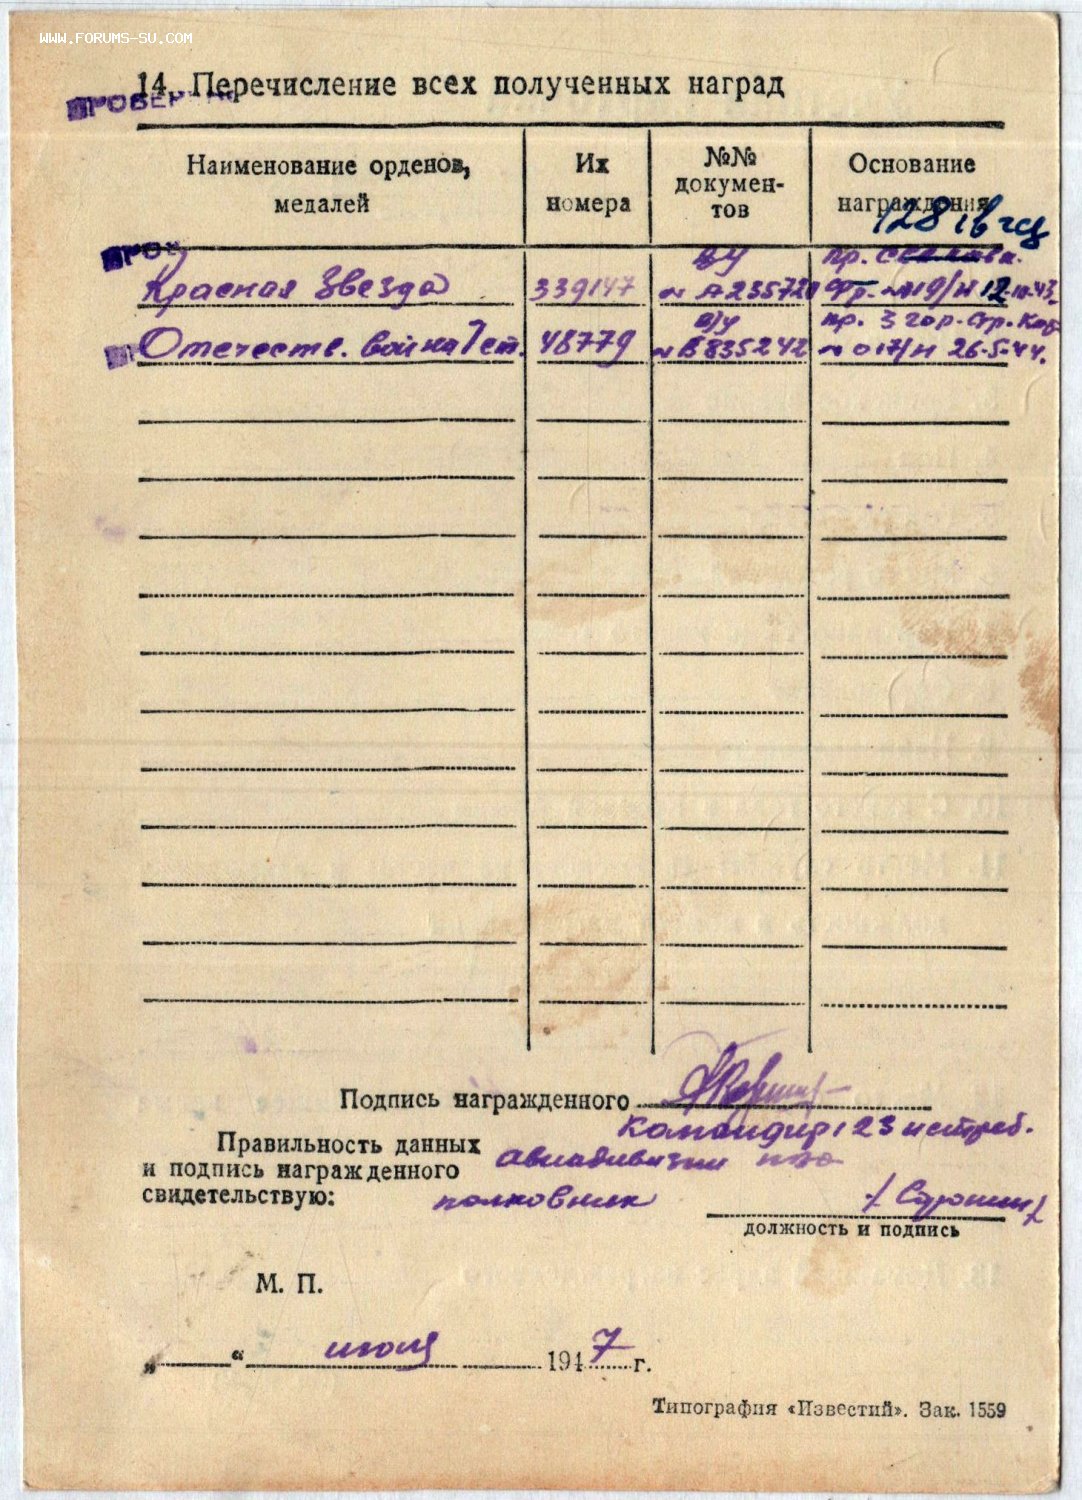 WWW.FORUMS-SU.COM
14. Перечисление всех полученных наград
Наименование орденов, медалей
Их номера
№№ документов
Основание награждения
128 гв
Красная Звезда 339147 в/у № А235720 пр. фр. № 019/н 12.10.43.
Отечеств. война 1 ст. 48779 в/у № В835242 пр. 3 гор. стр. Кор. № 017/н 26.5.44.
Подпись награжденного
Командир 123 истреб.
Правильность данных
и подпись награжденного
свидетельствую:
авиадивизии пво
полковник
должность и подпись
М. П.
„ “ июля 1947 г.
Типография «Известий». Зак. 1559